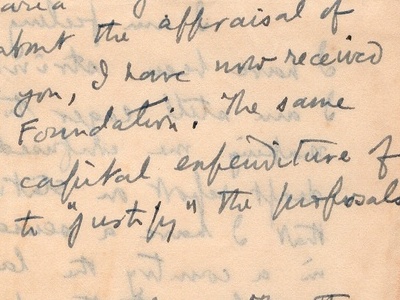 area
about the appraisal of
you, I have now received
Foundation. The same
capital expenditure of
to "justify" the proposals